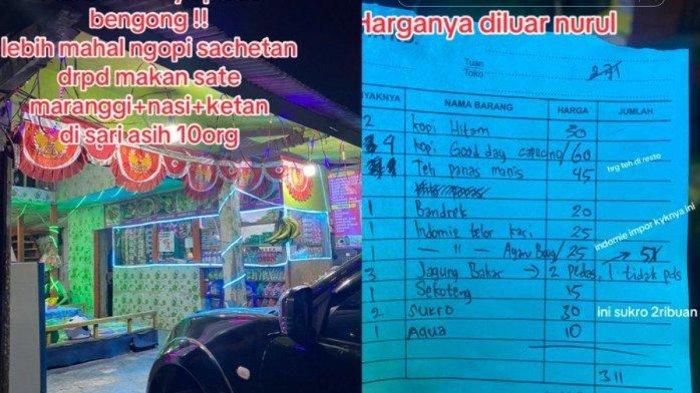 bengong !!
lebih mahal ngopi sachetan
drpd makan sate
maranggi+nasi+ketan
di sari asih 10org
Harganya diluar nurul
Tuan
Toko
YAKNYA NAMA BARANG HARGA JUMLAH
2 kopi Hitam 30
9 kopi Good day capucino 60
Teh panas manis 45
hrg teh di resto
1 Bandrek 20
1 Indomie telor kari 25
indomie impor kyknya ini
1 — 11 — Ayam Bwg 25
3 Jagung Bakar → 2 Pedas, 1 tidak pds
1 Sekoteng 15
2 Sukro 30 ini sukro 2ribuan
1 Aqua 10
311